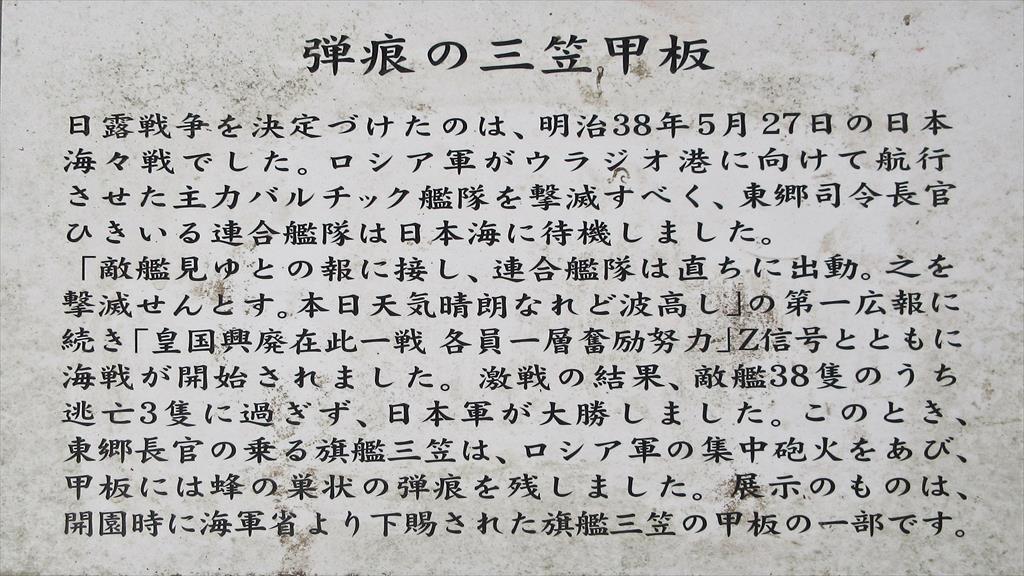 弾痕の三笠甲板
日露戦争を決定づけたのは、明治38年5月27日の日本
海々戦でした。ロシア軍がウラジオ港に向けて航行
させた主力バルチック艦隊を撃滅すべく、東郷司令長官
ひきいる連合艦隊は日本海に待機しました。
「敵艦見ゆとの報に接し、連合艦隊は直ちに出動。之を
撃滅せんとす。本日天気晴朗なれど波高し」の第一広報に
続き「皇国興廃在此一戦 各員一層奮励努力」Z信号とともに
海戦が開始されました。激戦の結果、敵艦38隻のうち
逃亡3隻に過ぎず、日本軍が大勝しました。このとき、
東郷長官の乗る旗艦三笠は、ロシア軍の集中砲火をあび、
甲板には蜂の巣状の弾痕を残しました。展示のものは、
開園時に海軍省より下賜された旗艦三笠の甲板の一部です。